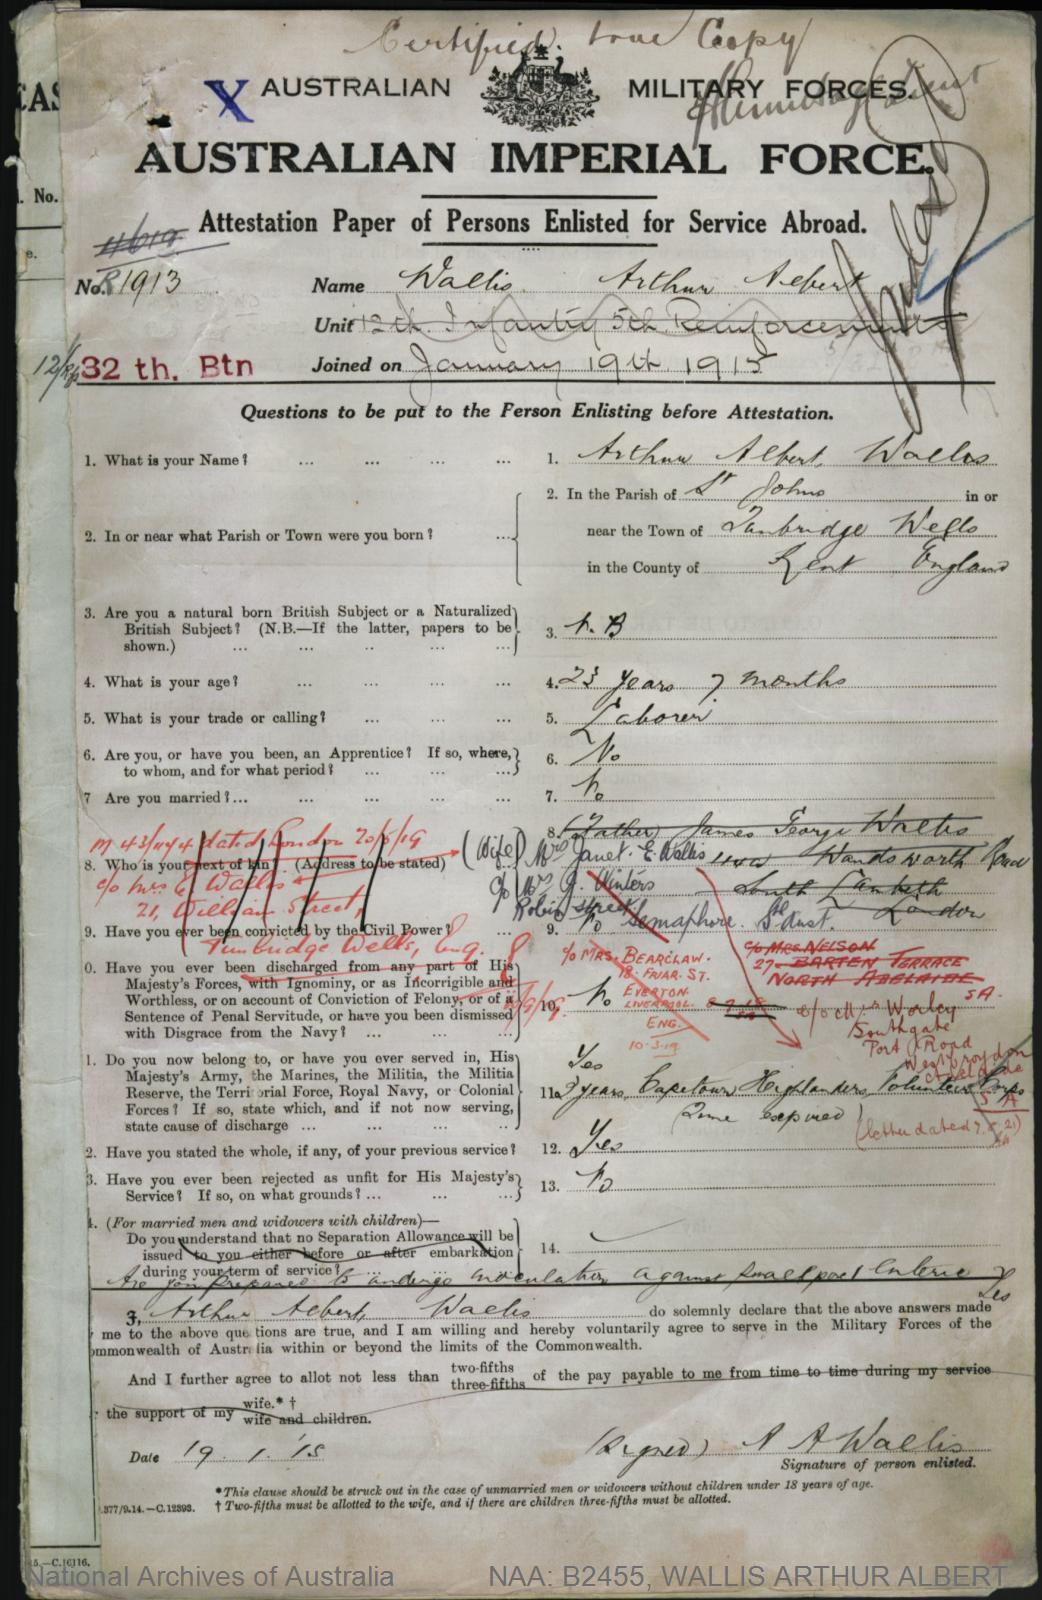 Certified true Copy
X AUSTRALIAN MILITARY FORCES.
AUSTRALIAN IMPERIAL FORCE.
Attestation Paper of Persons Enlisted for Service Abroad.
No. R1913 Name Wallis Arthur Albert
Unit 12th Infantry 5th Reinforcements
32 th. Btn Joined on January 19th 1915
Questions to be put to the Person Enlisting before Attestation.
1. What is your Name? ... ... ... ... 1. Arthur Albert Wallis
2. In the Parish of St Johns in or
2. In or near what Parish or Town were you born? ... near the Town of Tunbridge Wells
in the County of Kent England
3. Are you a natural born British Subject or a Naturalized
British Subject? (N.B.—If the latter, papers to be
shown.) ... ... .. ... ... 3. N. B
4. What is your age? ... ... ... ... 4. 23 years 7 months
5. What is your trade or calling? ... ... ... 5. Laborer
6. Are you, or have you been, an Apprentice? If so, where,
to whom, and for what period? ... ... ... 6. No
7 Are you married?... ... ... ... ... 7. No
8. (Father) James George Wallis
M 43/1144 dated London 20/5/19 (Wife) Mrs Janet. E. Wallis Wandsworth Road
8. Who is your next of kin? (Address to be stated)
c/o Mrs E Wallis c/o Mrs J. Winters South Lambeth
21, William Street, Robin street London
9. Have you ever been convicted by the Civil Power? 9. No Semaphore. Sth Aust.
Tunbridge Wells, Eng.
c/o MRS. BEARCLAW.
18. FRIAR. ST.
EVERTON.
LIVERPOOL.
ENG.
10-3-19
c/o MRS. NELSON
27 BARTEN TERRACE
NORTH ADELAIDE
S.A.
0. Have you ever been discharged from any part of His
Majesty's Forces, with Ignominy, or as Incorrigible and
Worthless, or on account of Conviction of Felony, or of a
Sentence of Penal Servitude, or have you been dismissed
with Disgrace from the Navy? ... ... ... 10. No
Worley
Southgate
Port Road
West Croydon
Adelaide
S A
1. Do you now belong to, or have you ever served in, His
Majesty's Army, the Marines, the Militia, the Militia
Reserve, the Territorial Force, Royal Navy, or Colonial
Forces? If so, state which, and if not now serving,
state cause of discharge ... ... ... ...
Yes
11. 2 years Capetown Highlanders Volunteer Corps
Time expired
2. Have you stated the whole, if any, of your previous service? 12. Yes
3. Have you ever been rejected as unfit for His Majesty's
Service? If so, on what grounds? ... ... ... 13. No
4. (For married men and widowers with children)—
Do you understand that no Separation Allowance will be
issued to you either before or after embarkation
during your term of service? ... ... ... 14.
Are you prepared to undergo inoculation against smallpox & enteric? Yes
I, Arthur Albert Wallis do solemnly declare that the above answers made
me to the above questions are true, and I am willing and hereby voluntarily agree to serve in the Military Forces of the
ommonwealth of Australia within or beyond the limits of the Commonwealth.
And I further agree to allot not less than two-fifths three-fifths of the pay payable to me from time to time during my service
the support of my wife.* † wife and children.
Date 19. 1. 15 (Signed) A A Wallis
Signature of person enlisted.
*This clause should be struck out in the case of unmarried men or widowers without children under 18 years of age.
† Two-fifths must be allotted to the wife, and if there are children three-fifths must be allotted.
.377/9.14.—C.12393.
National Archives of Australia NAA: B2455, WALLIS ARTHUR ALBERT